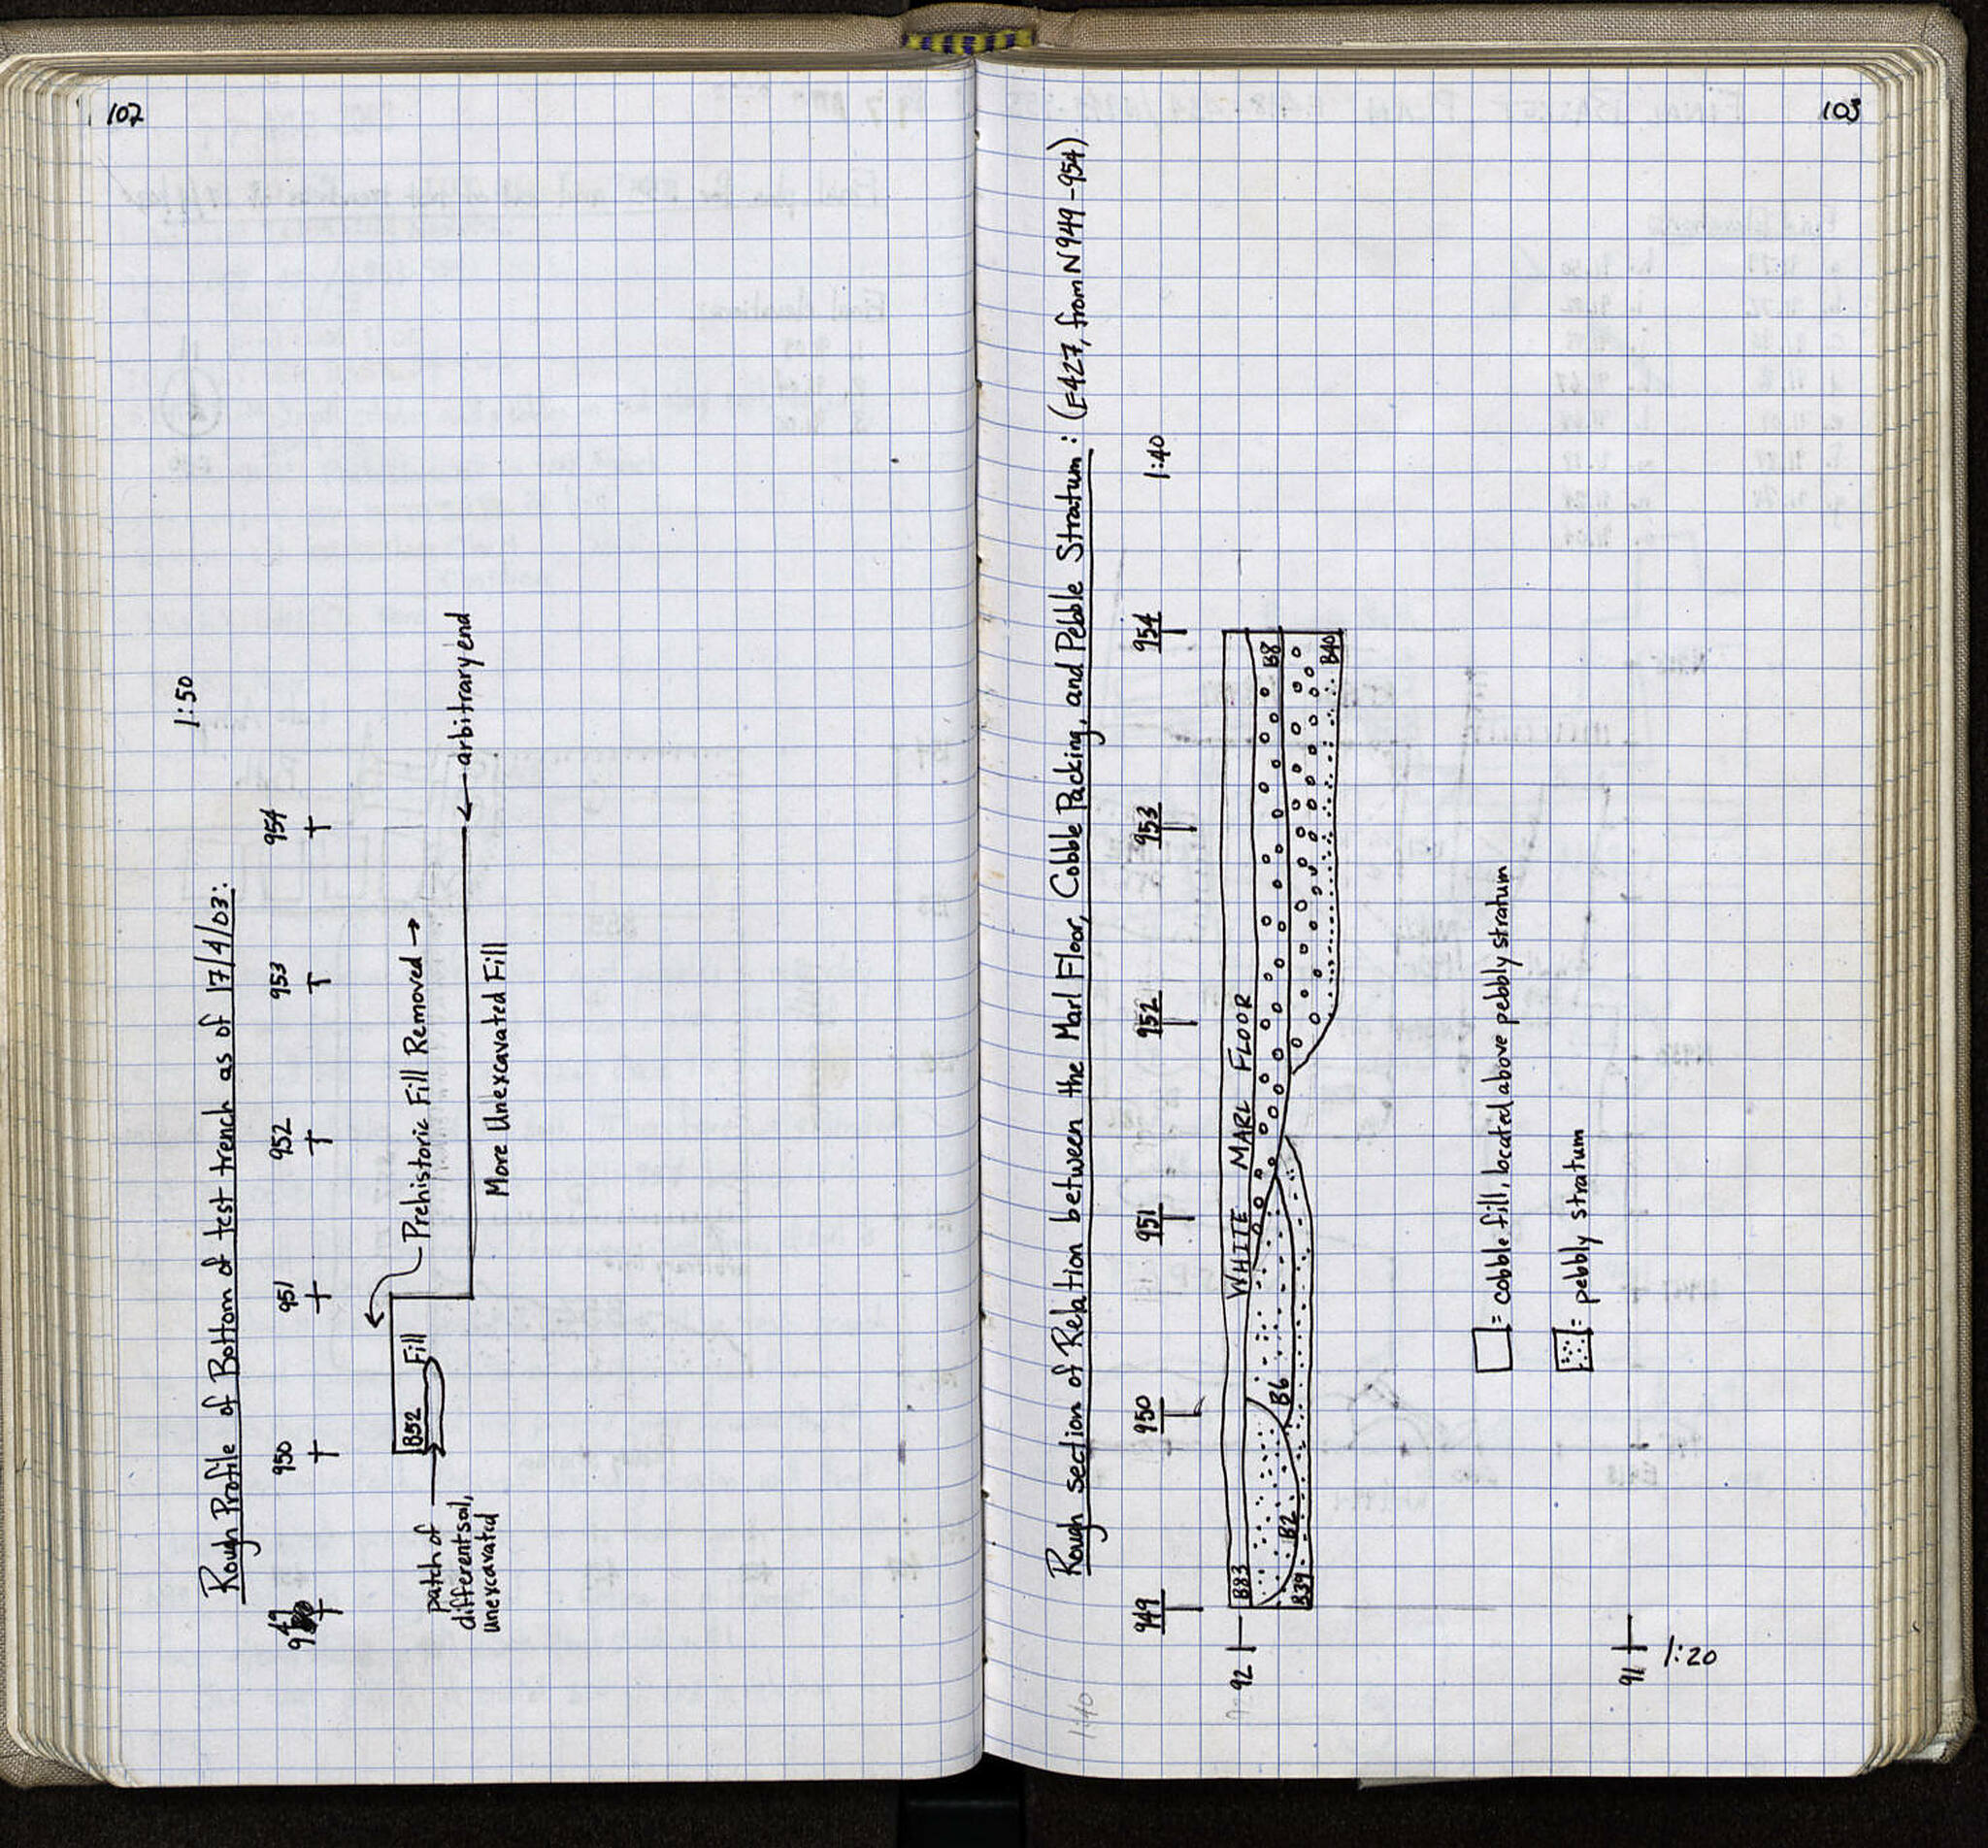 102
Rough Profile of Bottom of test trench as of 17/4/03:
1:50
949
950
951
952
953
954
B52
Fill
Prehistoric Fill Removed →
← arbitrary end
More Unexcavated Fill
patch of
different soil,
unexcavated
103
Rough section of Relation between the Marl Floor, Cobble Packing, and Pebble Stratum: (E427, from N949-954)
1:40
1:40
949
950
951
952
953
954
92
B83
WHITE MARL FLOOR
B8
B6
B2
B39
B40
= cobble fill, located above pebbly stratum
= pebbly stratum
91
1:20